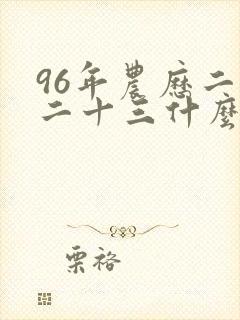 96年農歷二
二十三什麼
栗裕